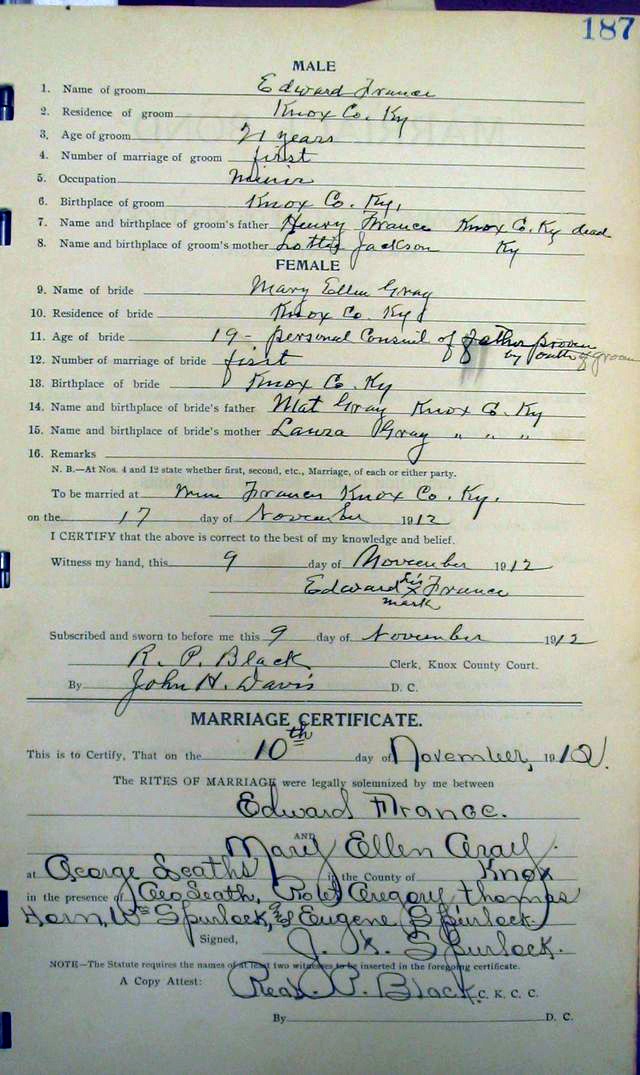 187
MALE
1. Name of groom Edward France
2. Residence of groom Knox Co. Ky
3. Age of groom 21 years
4. Number of marriage of groom first
5. Occupation
6. Birthplace of groom Knox Co. Ky,
7. Name and birthplace of groom's father Henry France Knox Co. Ky dead
8. Name and birthplace of groom's mother Lottie Jackson Ky
FEMALE
9. Name of bride Mary Ellen Gray
10. Residence of bride Knox Co. Ky
11. Age of bride 19 - personal Consent of father proven
by oath of groom
12. Number of marriage of bride first
13. Birthplace of bride Knox Co. Ky
14. Name and birthplace of bride's father Mat Gray Knox Co. Ky
15. Name and birthplace of bride's mother Laura Gray " " "
16. Remarks
N. B.—At Nos. 4 and 12 state whether first, second, etc., Marriage, of each or either party.
To be married at Frances Knox Co. Ky.
on the 17 day of November 1912
I CERTIFY that the above is correct to the best of my knowledge and belief.
Witness my hand, this 9 day of November 1912
Edward his X France
mark
Subscribed and sworn to before me this 9 day of November 1912
R. P. Black Clerk, Knox County Court.
By John H. Davis D. C.
MARRIAGE CERTIFICATE.
This is to Certify, That on the 10th day of November, 1912.
The RITES OF MARRIAGE were legally solemnized by me between
Edward France.
AND
Mary Ellen Gray.
at George in the County of Knox
in the presence of Geo Gregory, Thomas
Horn, Wm Spurlock, and Eugene Spurlock.
Signed, J. Spurlock.
NOTE—The Statute requires the names of at least two witnesses to be inserted in the foregoing certificate.
A Copy Attest: P. Black C. K. C. C.
By D. C.